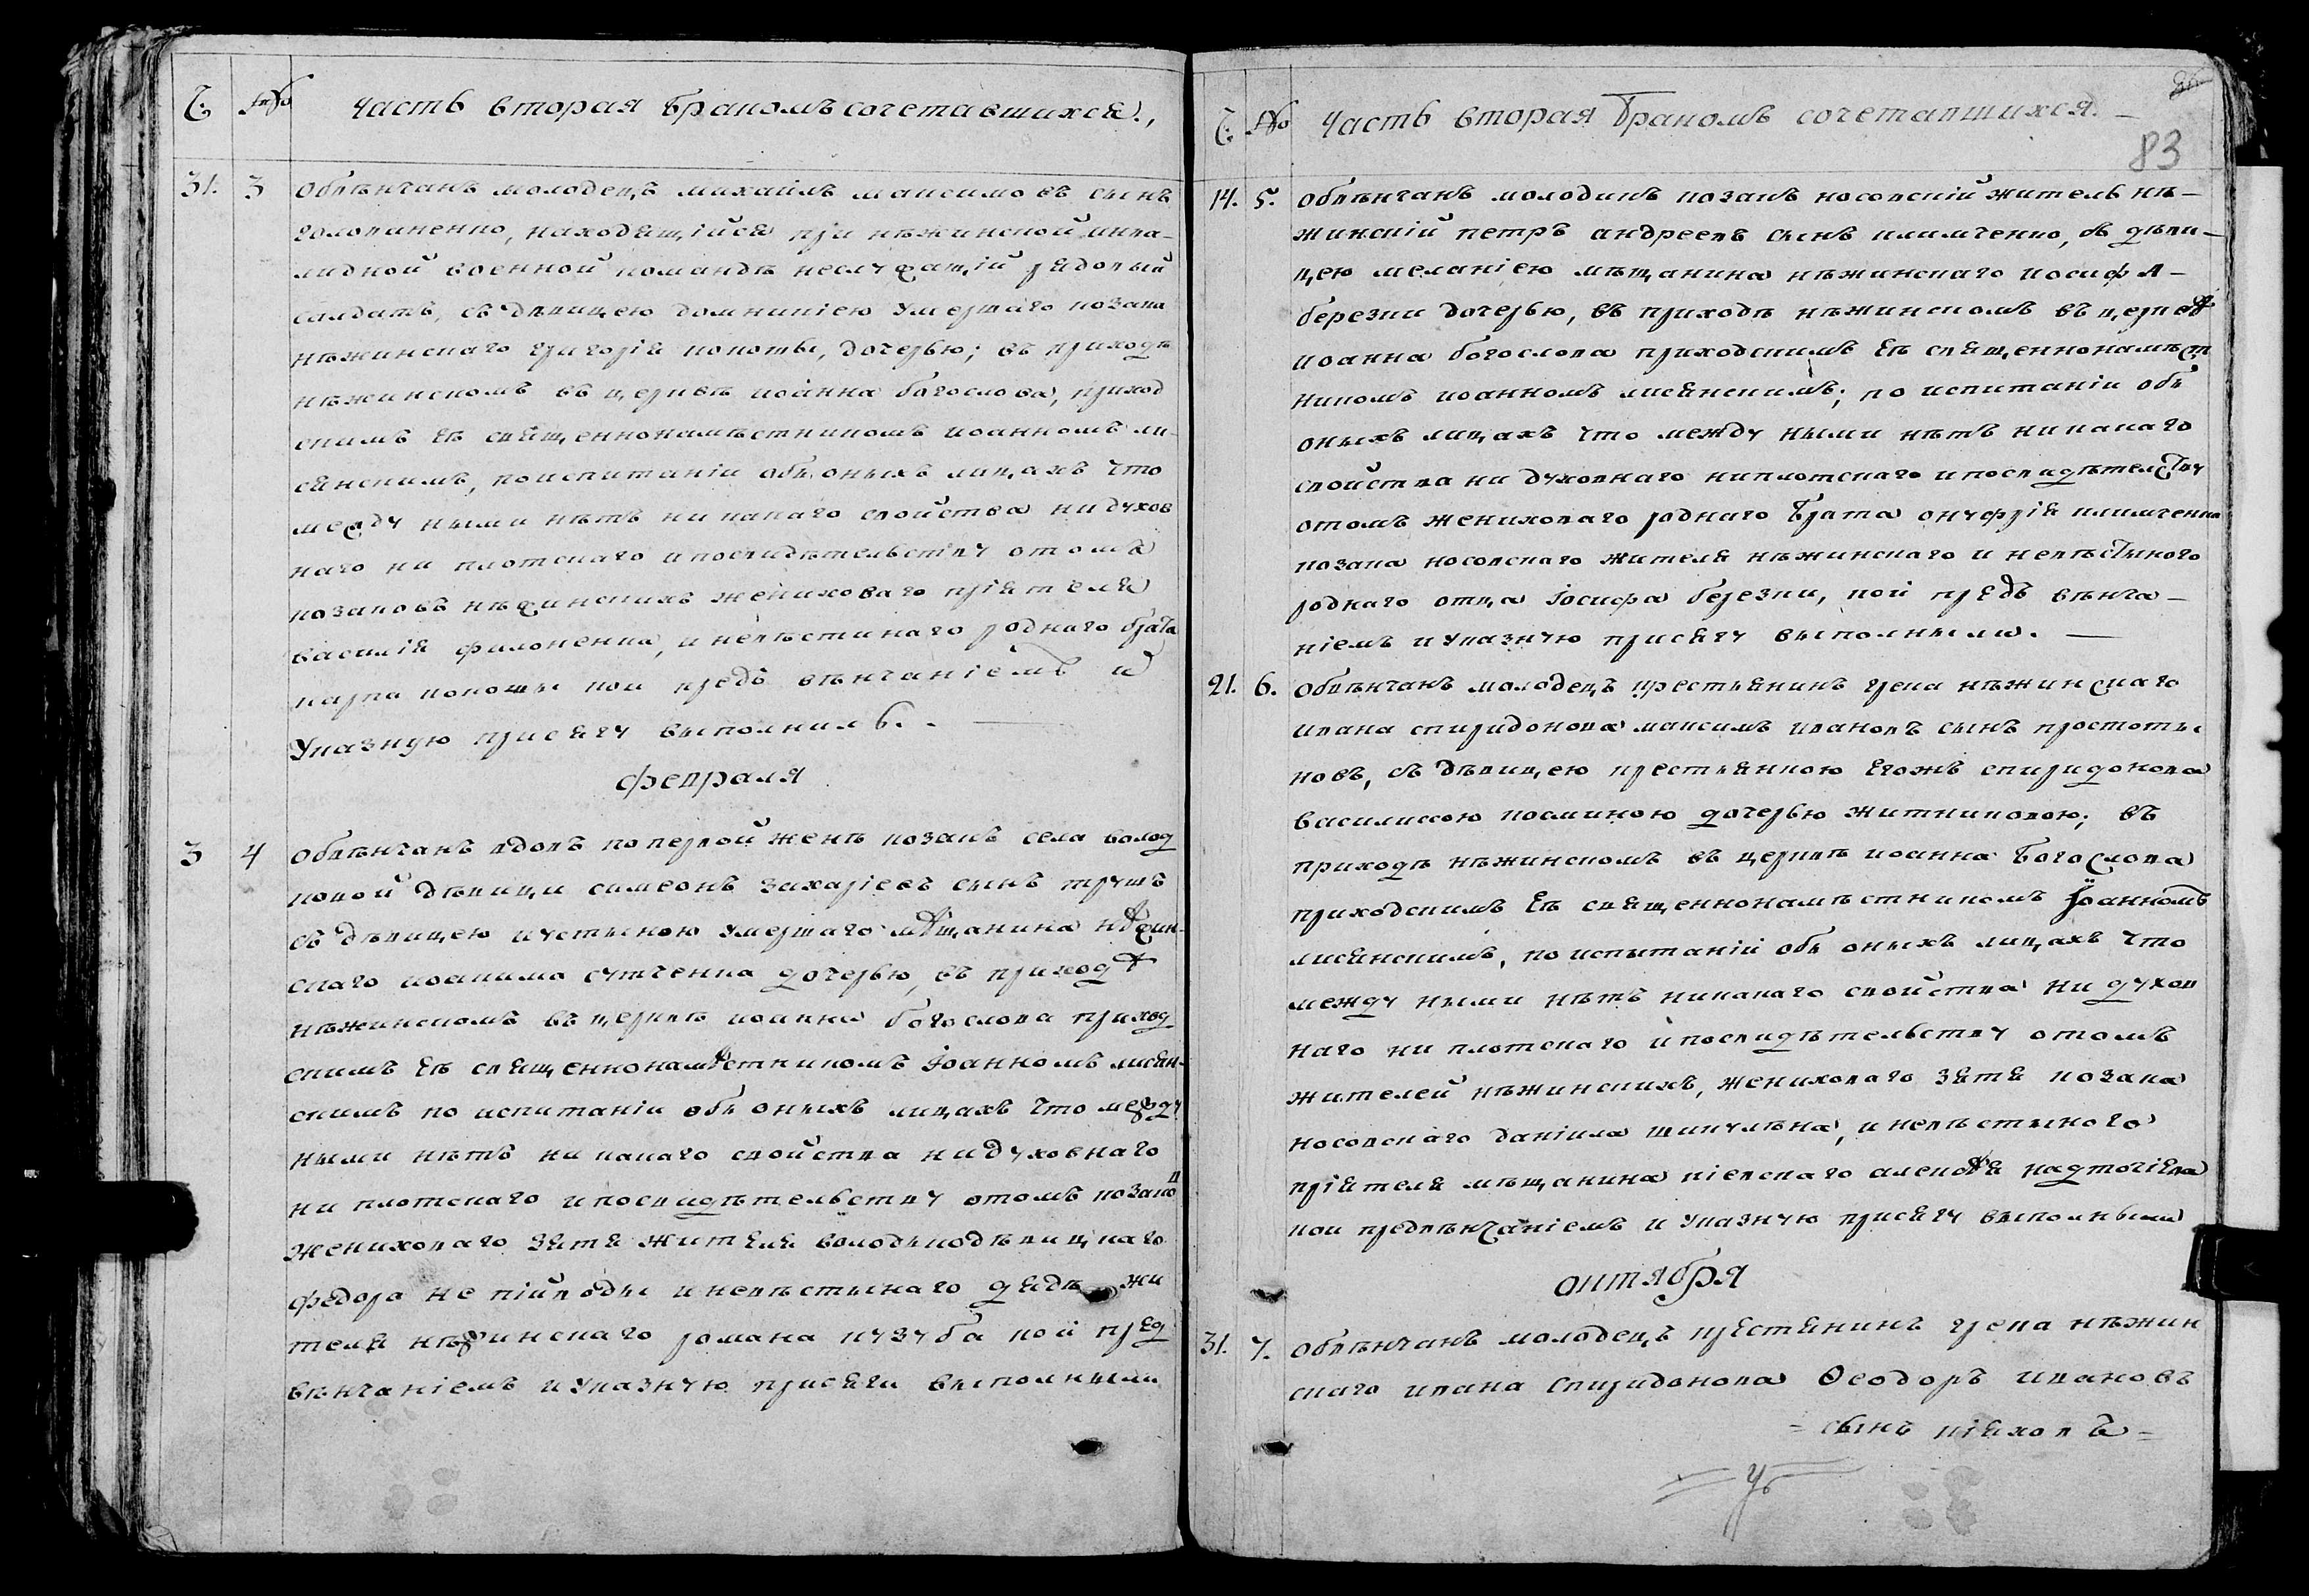 Ч. № Часть вторая бракомъ сочетавшихся.,
31. 3 Обвѣнчанъ молодецъ михаилъ максимовъ сынъ
голованенко, находящійся при нѣжинской инва-
лидной военной командѣ неслужащій рядовый
салдатъ, съ дѣвицею домникіею умершаго козака
нѣжинскаго григорія кокоты, дочерью; въ приходѣ
нѣжинскомъ въ церквѣ иоанна богослова, приход
скимъ еѣ священнонамѣстникомъ иоанномъ ли-
сянскимъ, поиспитаніи объ оныхъ лицахъ что
между ными нѣтъ никакаго свойства ни духов
наго ни плотскаго и посвидѣтельству отомъ
козаковъ нѣжинскихъ жениховаго пріятеля
василія филоненка, и невѣстинаго роднаго брата
карпа кокоты кои предъ вѣнчаніемъ и
указную присягу выполнилъ. —
февраля
3 4 Обвѣнчанъ вдовъ по первой женѣ козакъ села волод
ковой дѣвици симеонъ захаріевъ сынъ трушъ
съ дѣвицею иустыною умершаго мѣщанина нѣжин-
скаго иоакима сутченка дочерью, въ приходѣ
нѣжинскомъ въ церквѣ иоанна богослова приход
скимъ еѣ священнонамѣстникомъ Иоанномъ лисян-
скимъ по испитаніи объ оныхъ лицахъ что между
ными нѣтъ никакаго свойства ни духовнаго
ни плотскаго и посвидѣтельству отомъ козаковъ
жениховаго зятя жителя володкодѣвицкаго
федора не пійводы и невѣстынаго дядѣ жи
теля нѣжинскаго романа кузуба кои пред
вѣнчаніемъ и указную присяги выполныли
83
Ч. № Часть вторая Бракомъ сочетавшихся. —
14. 5. Обвѣнчанъ молодикъ козакъ носовскій житель нѣ-
жинскій петръ андреевъ сынъ климченко, съ дѣви-
цею меланіею мѣщанина нѣжинскаго иосифа-
березки дочерью, въ приходѣ нѣжинскомъ въ церквѣ
иоанна богослова приходскимъ еѣ священнонамѣст
никомъ иоанномъ лисянскимъ; по испитаніи объ
оныхъ лицахъ что между ными нѣтъ никакаго
свойства ни духовнаго ниплотскаго и посвидѣтелству
отомъ жениховаго роднаго брата онуфрія климченка
козака носовскаго жителя нѣжинскаго и невѣстыного
роднаго отца Іосифа березки, кои предъ вѣнча-
ніемъ и указную присягу выполныли. —
21. 6. Обвѣнчанъ молодецъ крестьянинъ грека нѣжинскаго
ивана спиридонова максимъ ивановъ сынъ простоты
новъ, съ дѣвицею крестьянкою егожъ спиридонова
василиссою косминою дочерью житниковою; въ
приходѣ нѣжинскомъ въ церквѣ иоанна Богослова
приходскимъ еѣ священнонамѣстникомъ Іоанномъ
лисянскимъ, по испытаніи объ оныхъ лицахъ что
между ными нѣтъ никакаго свойства ни духов
наго ни плотскаго и посвидѣтельству отомъ
жителей нѣжинскихъ, жениховаго зятя козака
носовскаго даніила шикулѣна, и невѣстыного
пріятеля мѣщанина кіевскаго алексѣя надточіева
кои предвѣнчаніемъ и указную присягу выполныли
октября
31. 7. Обвѣнчанъ молодецъ крестянинъ грека нѣжин
скаго ивана спиридонова Ѳеодоръ ивановъ
= сынъ піяховъ =